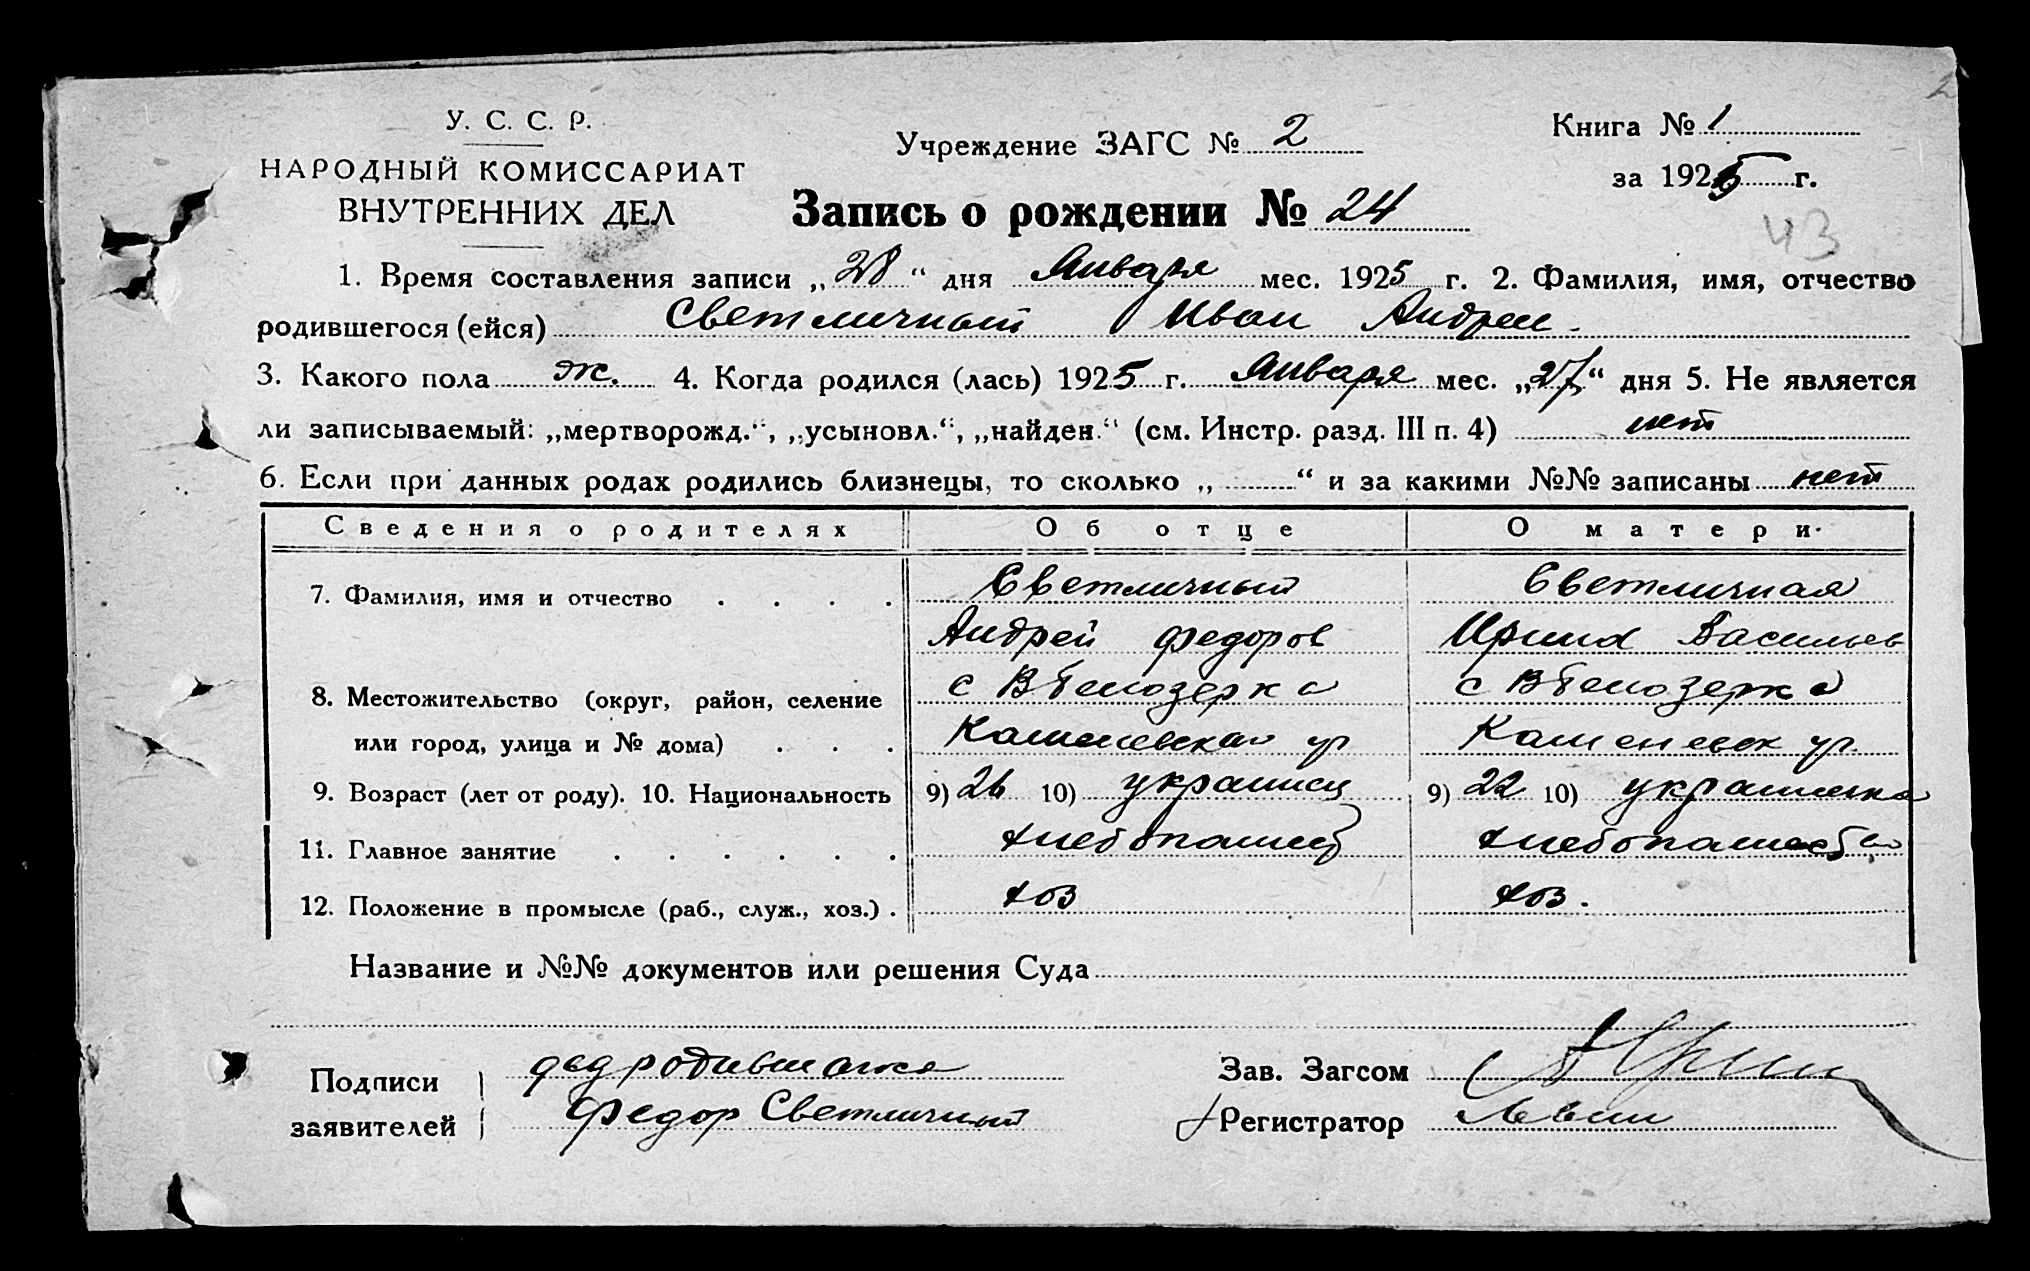 У. С. С. Р.
НАРОДНЫЙ КОМИССАРИАТ
ВНУТРЕННИХ ДЕЛ
Учреждение ЗАГС № 2
Книга № 1
за 1925 г.
Запись о рождении № 24
43
1. Время составления записи „28“ дня Января мес. 1925 г. 2. Фамилия, имя, отчество
родившегося (ейся) Светличный Иван Андреи.
3. Какого пола ж. 4. Когда родился (лась) 1925 г. Января мес. „27“ дня 5. Не является
ли записываемый: „мертворожд.“, „усыновл.“, „найден.“ (см. Инстр. разд. III п. 4) нет
6. Если при данных родах родились близнецы, то сколько „ “ и за какими №№ записаны нет
Сведения о родителях Об отце О матери
7. Фамилия, имя и отчество Светличный Светличная
Андрей Федоров Ирина Васильев
8. Местожительство (округ, район, селение с В Белозерка с В Белозерка
или город, улица и № дома) Каменевская ул Каменевск ул.
9. Возраст (лет от роду). 10. Национальность 9) 26 10) украинец 9) 22 10) украинка
11. Главное занятие хлебопашец
12. Положение в промысле (раб., служ., хоз.) хоз хоз.
Название и №№ документов или решения Суда
Подписи дед родившагося
заявителей Федор Светличный
Зав. Загсом
Регистратор Левин